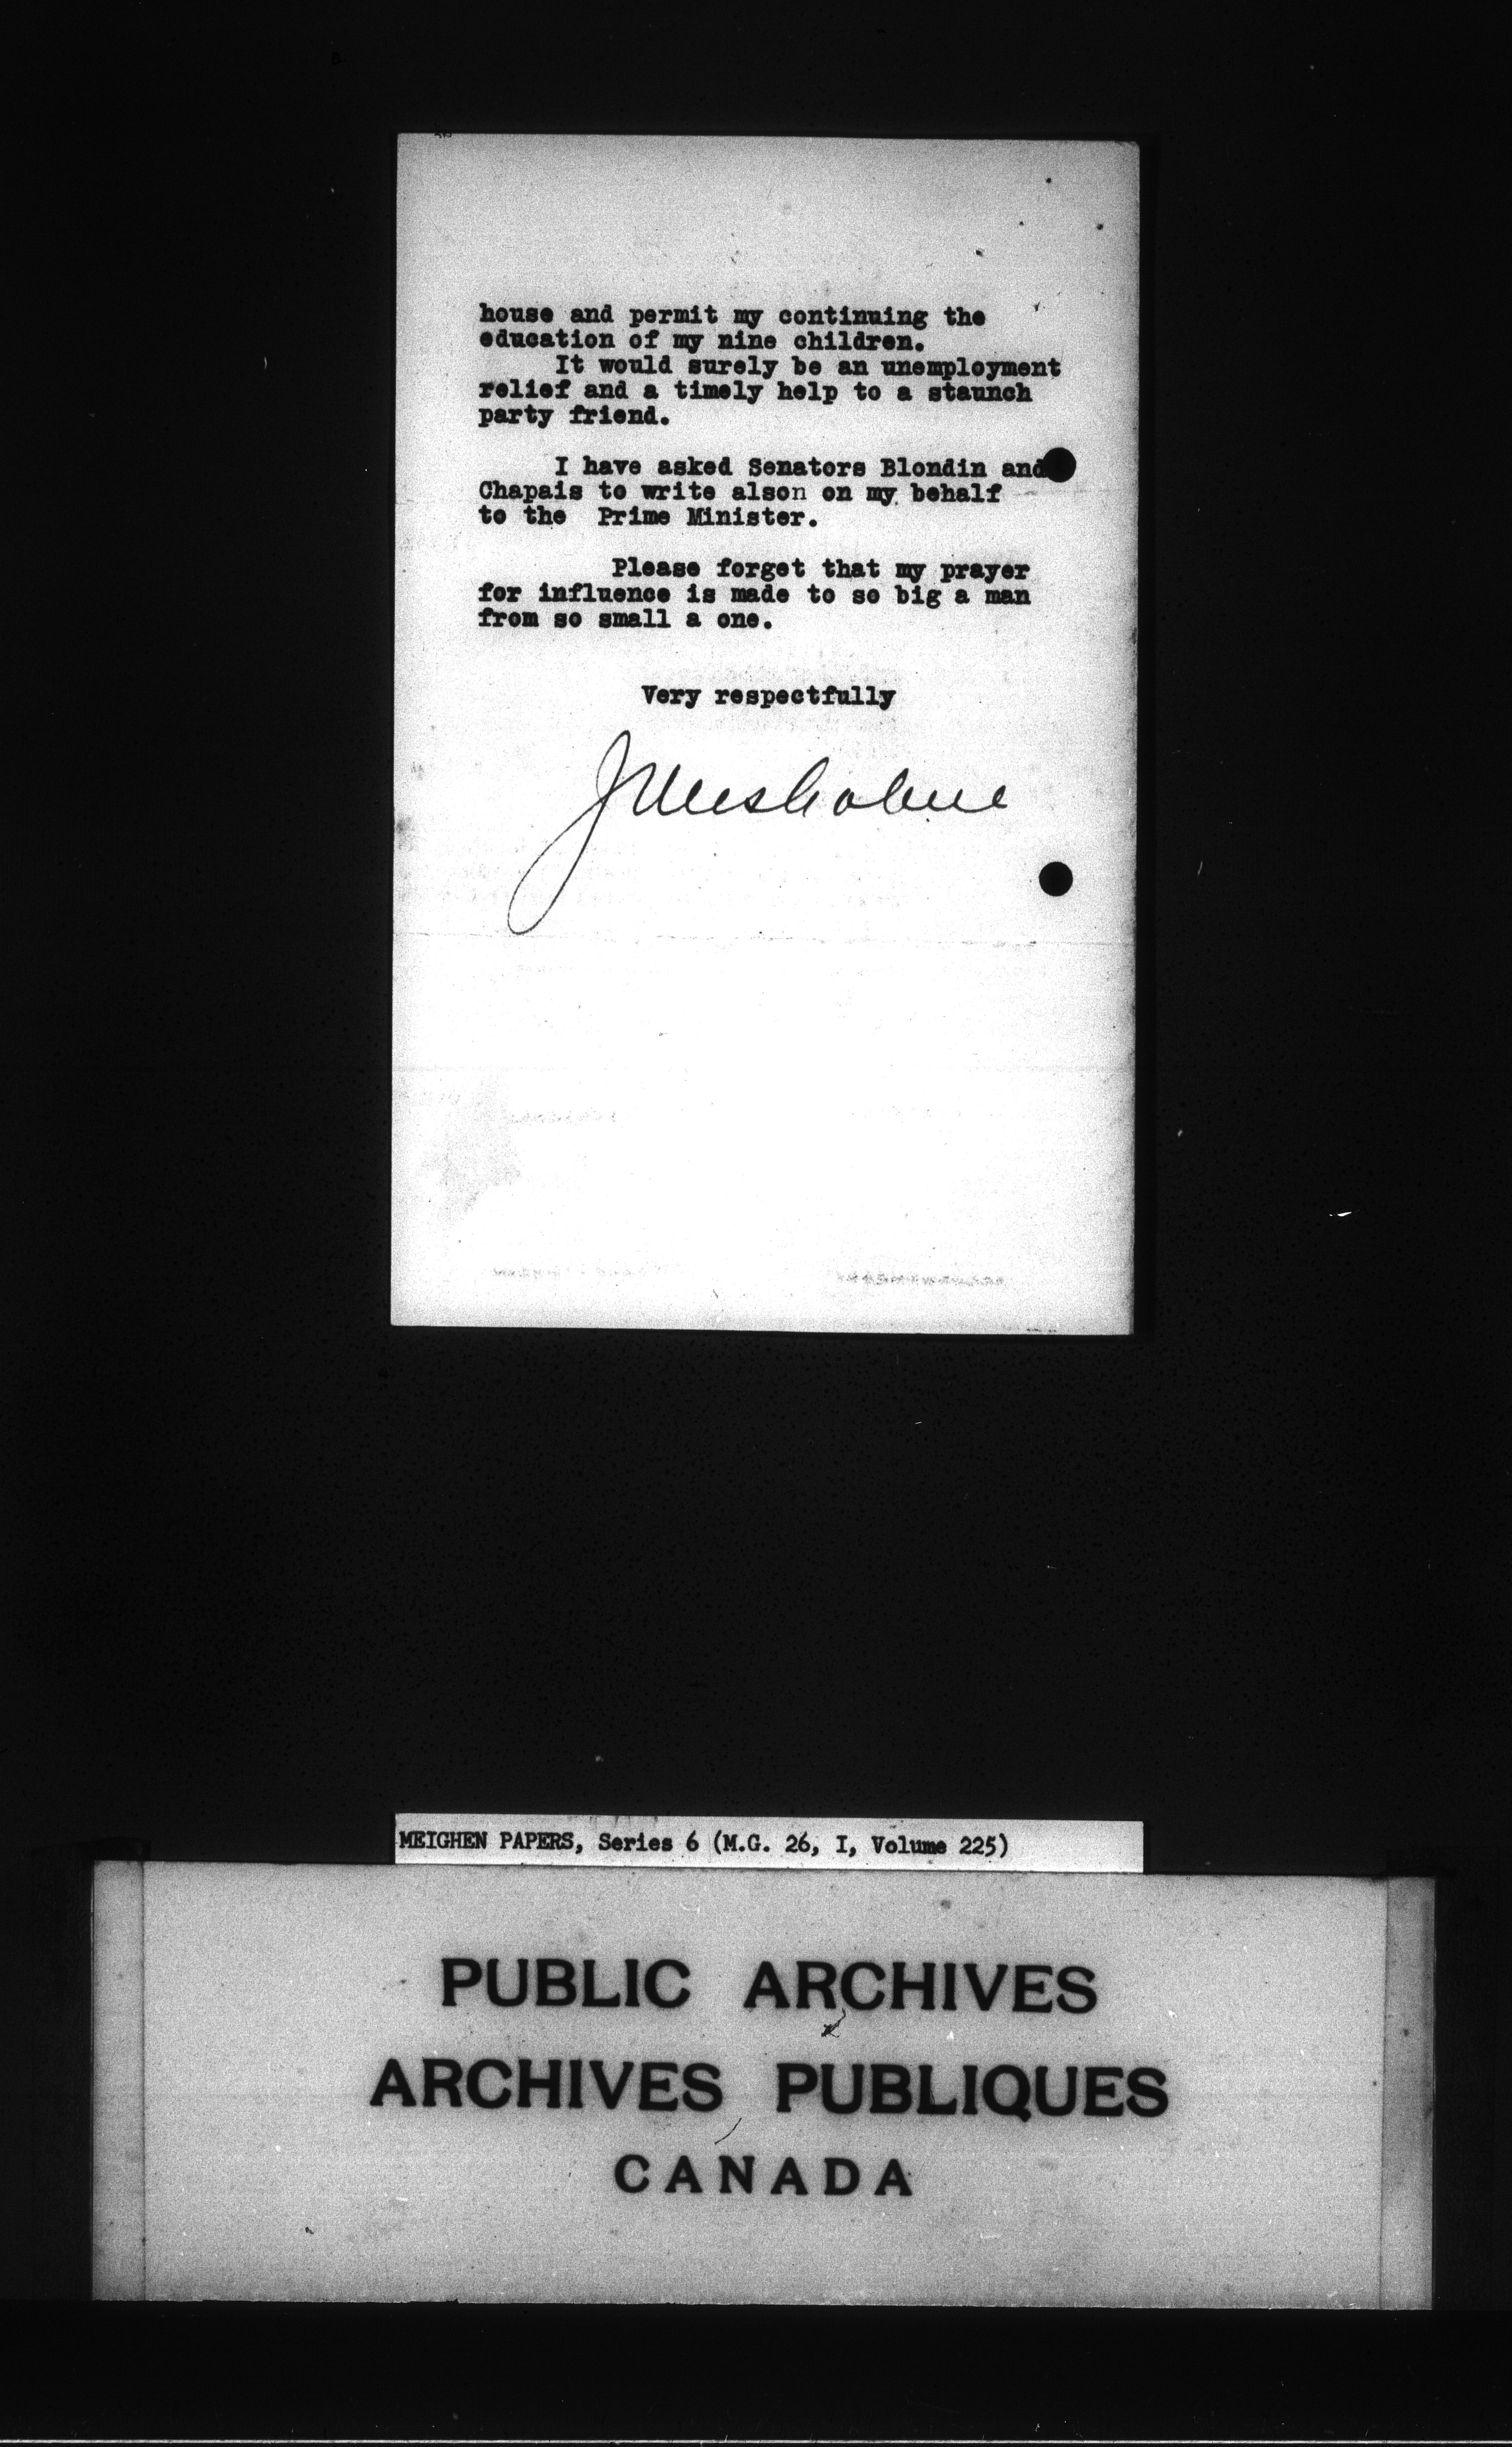 house and permit my continuing the
education of my nine children.
It would surely be an unemployment
relief and a timely help to a staunch
party friend.
I have asked Senators Blondin and
Chapais to write alson on my behalf
to the Prime Minister.
Please forget that my prayer
for influence is made to so big a man
from so small a one.
Very respectfully
MEIGHEN PAPERS, Series 6 (M.G. 26, I, Volume 225)
PUBLIC ARCHIVES
ARCHIVES PUBLIQUES
CANADA